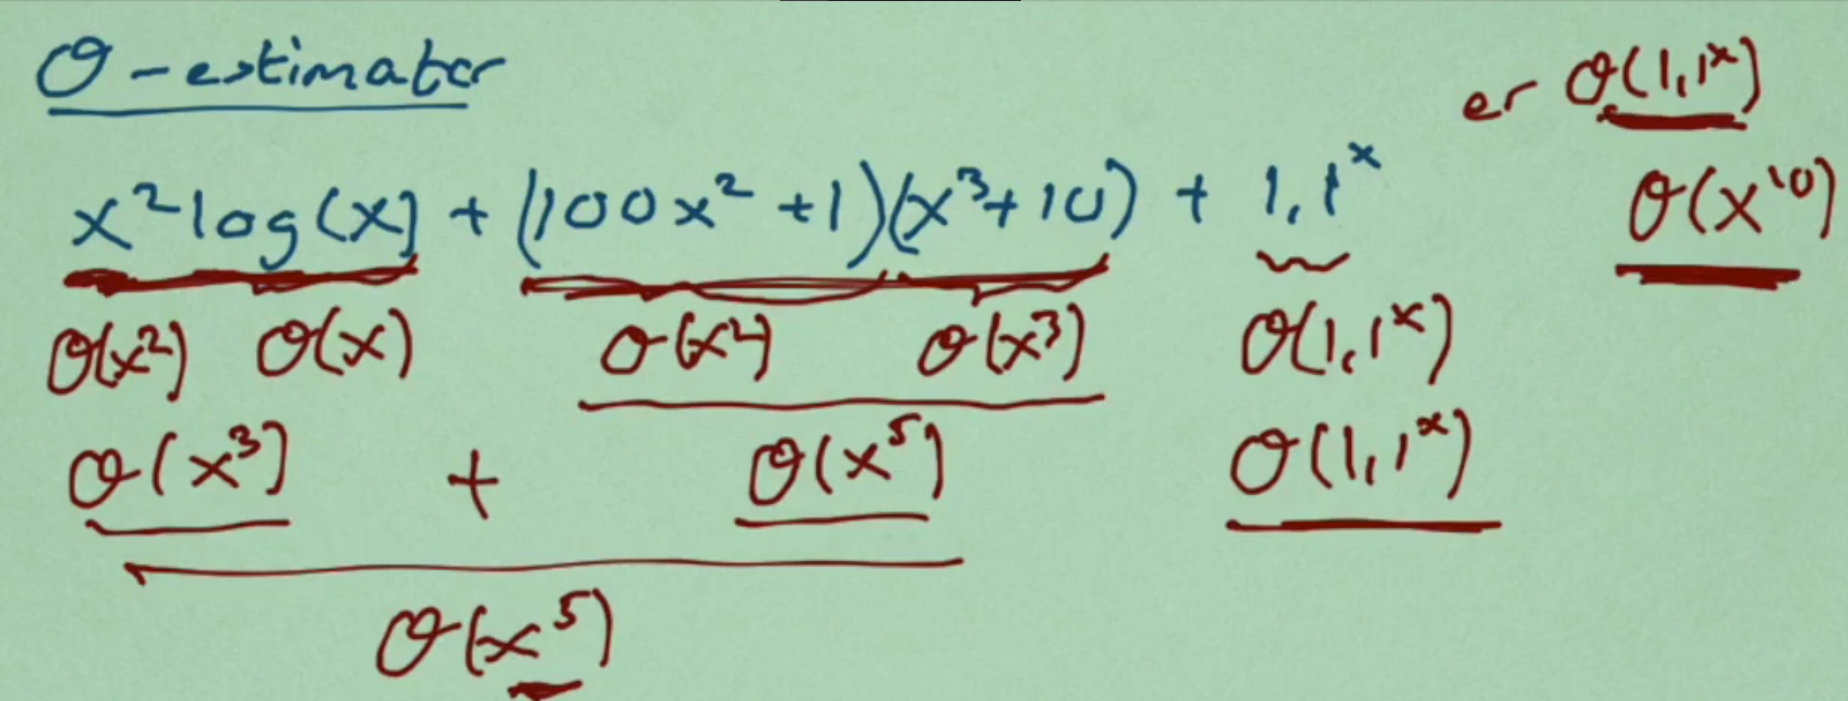 O-estimater
er O(1,1^x)
x² log(x) + (100x² + 1)(x³ + 10) + 1,1^x
O(x¹⁰)
O(x²) O(x) O(x²) O(x³) O(1,1^x)
O(x³) + O(x⁵) O(1,1^x)
O(x⁵)